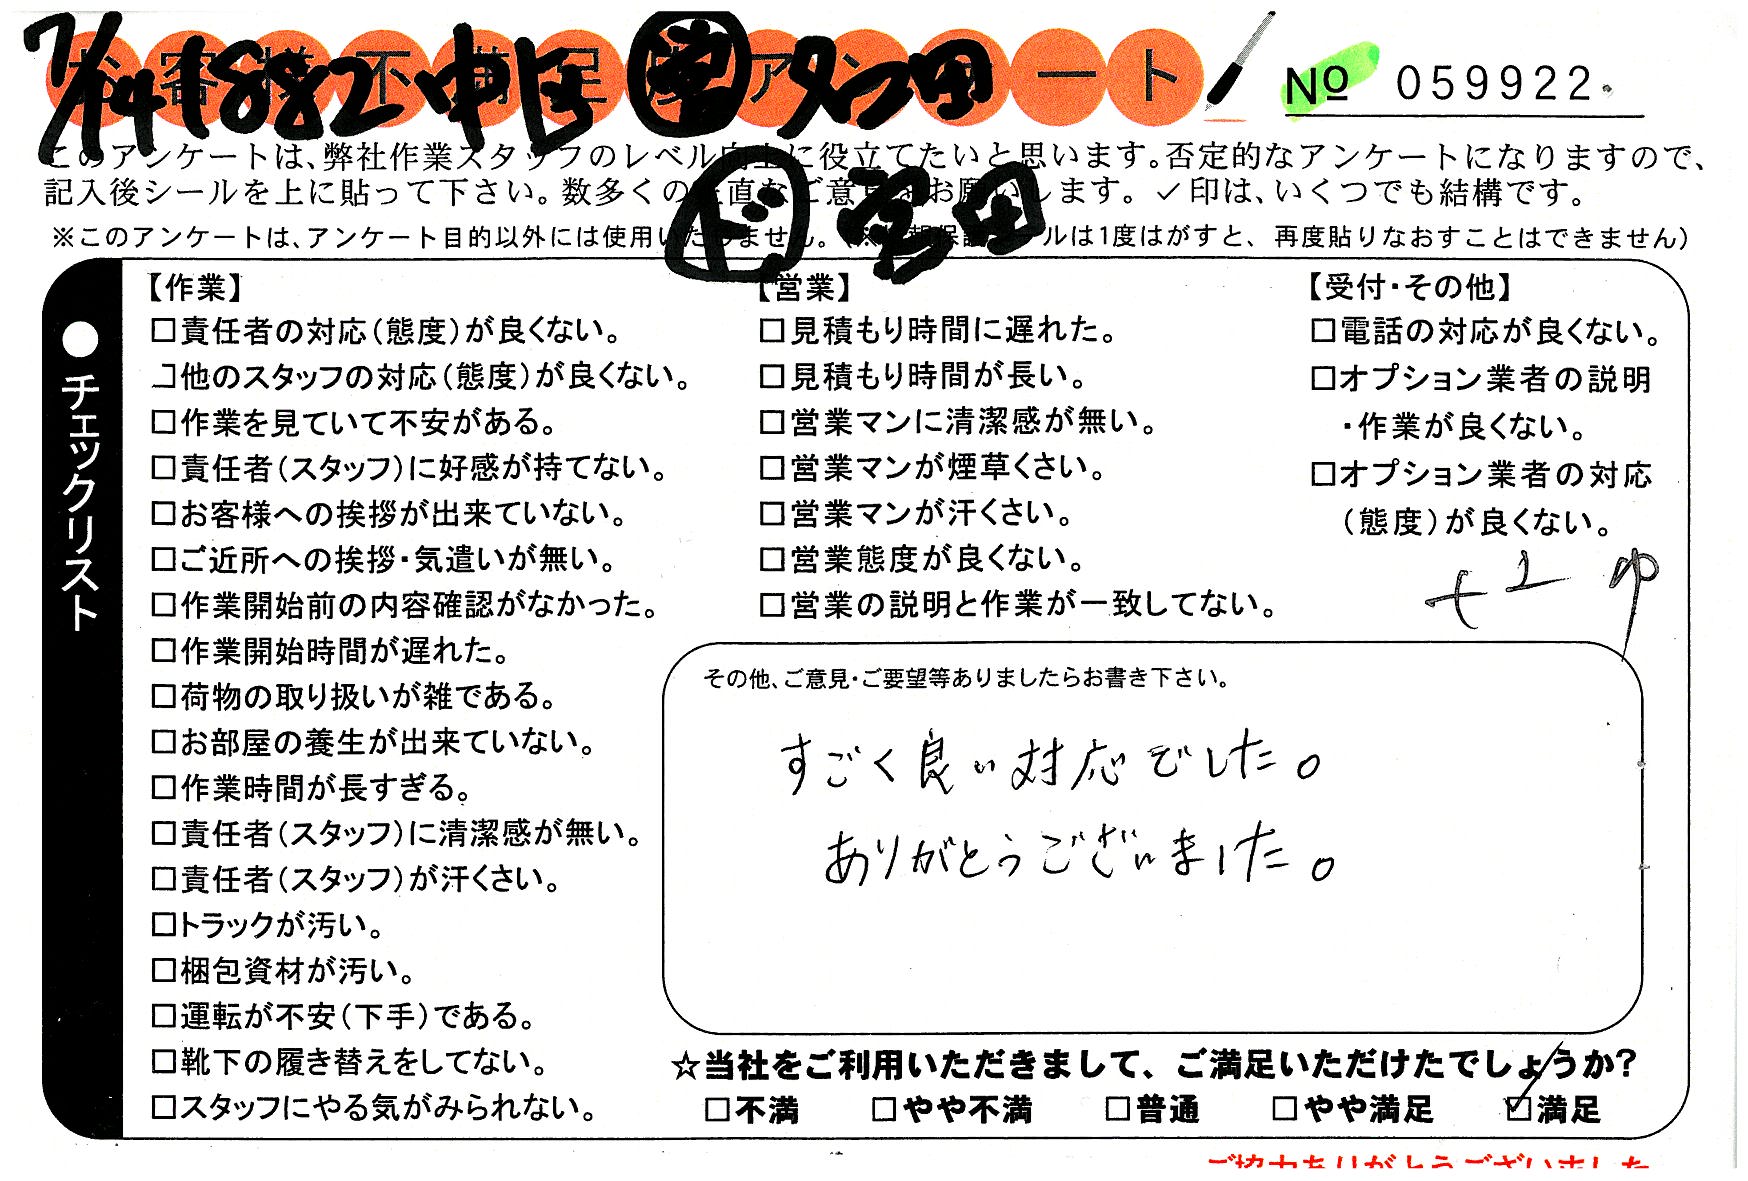 お客様不満足度アンケート
7/14 1882 中区 営 タコ田
№ 059922
このアンケートは、弊社作業スタッフのレベル向上に役立てたいと思います。否定的なアンケートになりますので、
記入後シールを上に貼って下さい。数多くの正直なご意見をお願いします。✓印は、いくつでも結構です。
ド 宮田
※このアンケートは、アンケート目的以外には使用いたしません。(※情報保護シールは1度はがすと、再度貼りなおすことはできません)
●チェックリスト
【作業】
□責任者の対応(態度)が良くない。
□他のスタッフの対応(態度)が良くない。
□作業を見ていて不安がある。
□責任者(スタッフ)に好感が持てない。
□お客様への挨拶が出来ていない。
□ご近所への挨拶・気遣いが無い。
□作業開始前の内容確認がなかった。
□作業開始時間が遅れた。
□荷物の取り扱いが雑である。
□お部屋の養生が出来ていない。
□作業時間が長すぎる。
□責任者(スタッフ)に清潔感が無い。
□責任者(スタッフ)が汗くさい。
□トラックが汚い。
□梱包資材が汚い。
□運転が不安(下手)である。
□靴下の履き替えをしてない。
□スタッフにやる気がみられない。
【営業】
□見積もり時間に遅れた。
□見積もり時間が長い。
□営業マンに清潔感が無い。
□営業マンが煙草くさい。
□営業マンが汗くさい。
□営業態度が良くない。
□営業の説明と作業が一致してない。
【受付・その他】
□電話の対応が良くない。
□オプション業者の説明
・作業が良くない。
□オプション業者の対応
(態度)が良くない。
その他、ご意見・ご要望等ありましたらお書き下さい。
すごく良い対応でした。
ありがとうございました。
☆当社をご利用いただきまして、ご満足いただけたでしょうか?
□不満 □やや不満 □普通 □やや満足 ☑満足
ご協力ありがとうございました